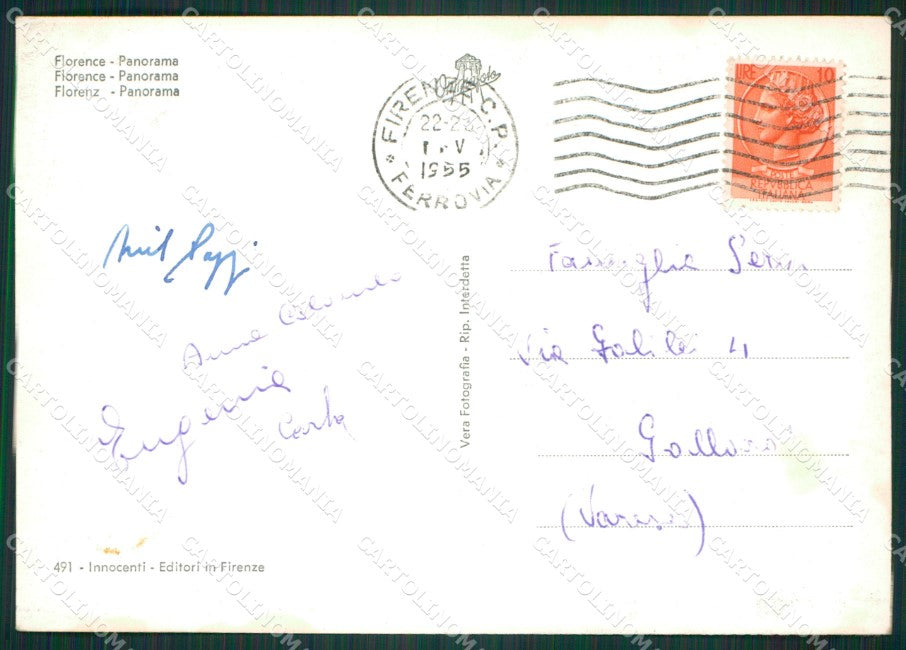 Florence - Panorama
Florence - Panorama
Florenz - Panorama
FIRENZE C.P.
22-23
1955
FERROVIA
LIRE 10
REPVBBLICA
ITALIANA
Anna
Eugenia
Carla
Vera Fotografia - Rip. Interdetta
Famiglia
Via Galilei 4
(Varese)
491 - Innocenti - Editori in Firenze
CARTOLINOMANIA